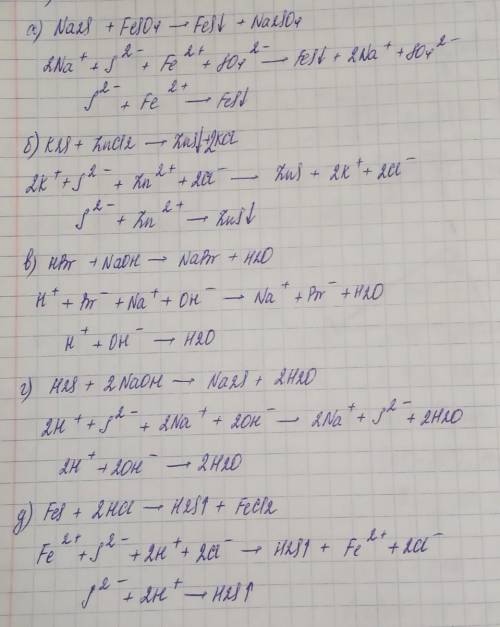 а) Na2S + FeSO4 → FeS↓ + Na2SO4
2Na⁺ + S²⁻ + Fe²⁺ + SO4²⁻ → FeS↓ + 2Na⁺ + SO4²⁻
S²⁻ + Fe²⁺ → FeS↓
б) K2S + ZnCl2 → ZnS↓ + 2KCl
2K⁺ + S²⁻ + Zn²⁺ + 2Cl⁻ → ZnS + 2K⁺ + 2Cl⁻
S²⁻ + Zn²⁺ → ZnS↓
в) HBr + NaOH → NaBr + H2O
H⁺ + Br⁻ + Na⁺ + OH⁻ → Na⁺ + Br⁻ + H2O
H⁺ + OH⁻ → H2O
г) H2S + 2NaOH → Na2S + 2H2O
2H⁺ + S²⁻ + 2Na⁺ + 2OH⁻ → 2Na⁺ + S²⁻ + 2H2O
2H⁺ + 2OH⁻ → 2H2O
д) FeS + 2HCl → H2S↑ + FeCl2
Fe²⁺ + S²⁻ + 2H⁺ + 2Cl⁻ → H2S↑ + Fe²⁺ + 2Cl⁻
S²⁻ + 2H⁺ → H2S↑